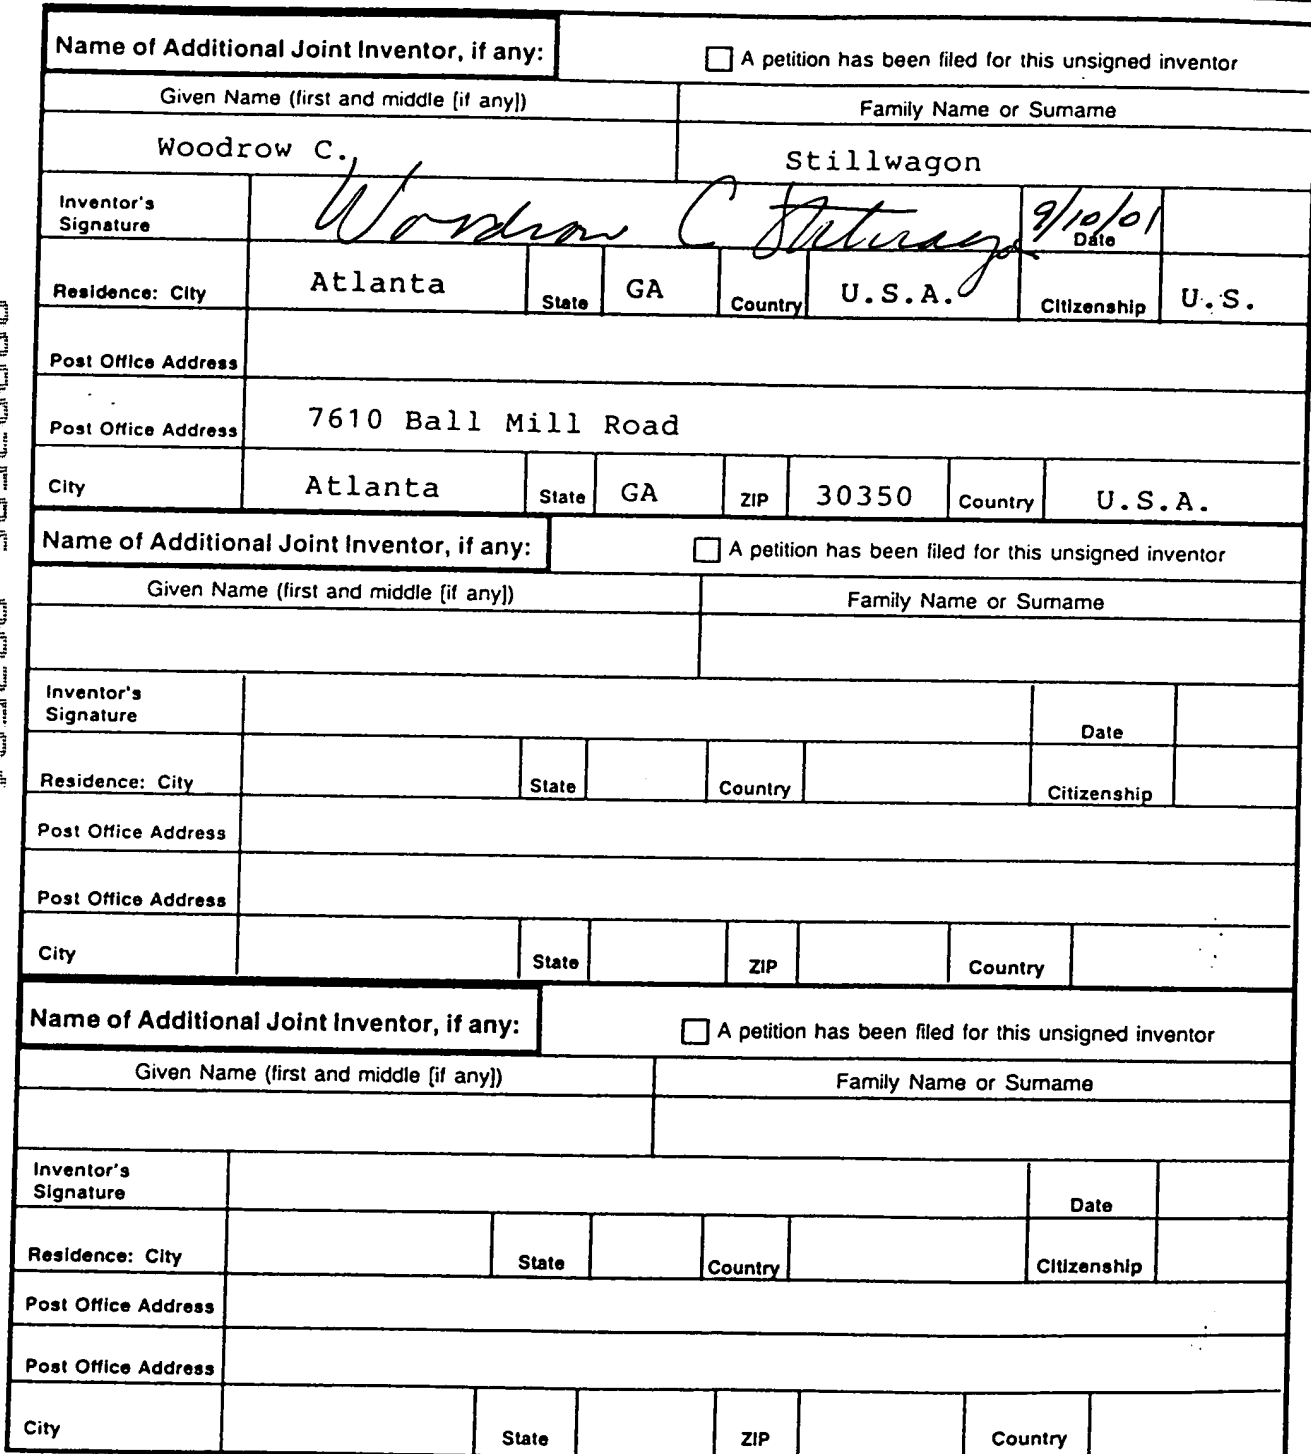 Name of Additional Joint Inventor, if any: A petition has been filed for this unsigned inventor
Given Name (first and middle [if any]) Family Name or Surname
Woodrow C. Stillwagon
Inventor's Signature Woodrow C Stillwagon 9/10/01 Date
Residence: City Atlanta State GA Country U.S.A. Citizenship U.S.
Post Office Address
Post Office Address 7610 Ball Mill Road
City Atlanta State GA ZIP 30350 Country U.S.A.
Name of Additional Joint Inventor, if any: A petition has been filed for this unsigned inventor
Given Name (first and middle [if any]) Family Name or Surname
Inventor's Signature Date
Residence: City State Country Citizenship
Post Office Address
Post Office Address
City State ZIP Country
Name of Additional Joint Inventor, if any: A petition has been filed for this unsigned inventor
Given Name (first and middle [if any]) Family Name or Surname
Inventor's Signature Date
Residence: City State Country Citizenship
Post Office Address
Post Office Address
City State ZIP Country